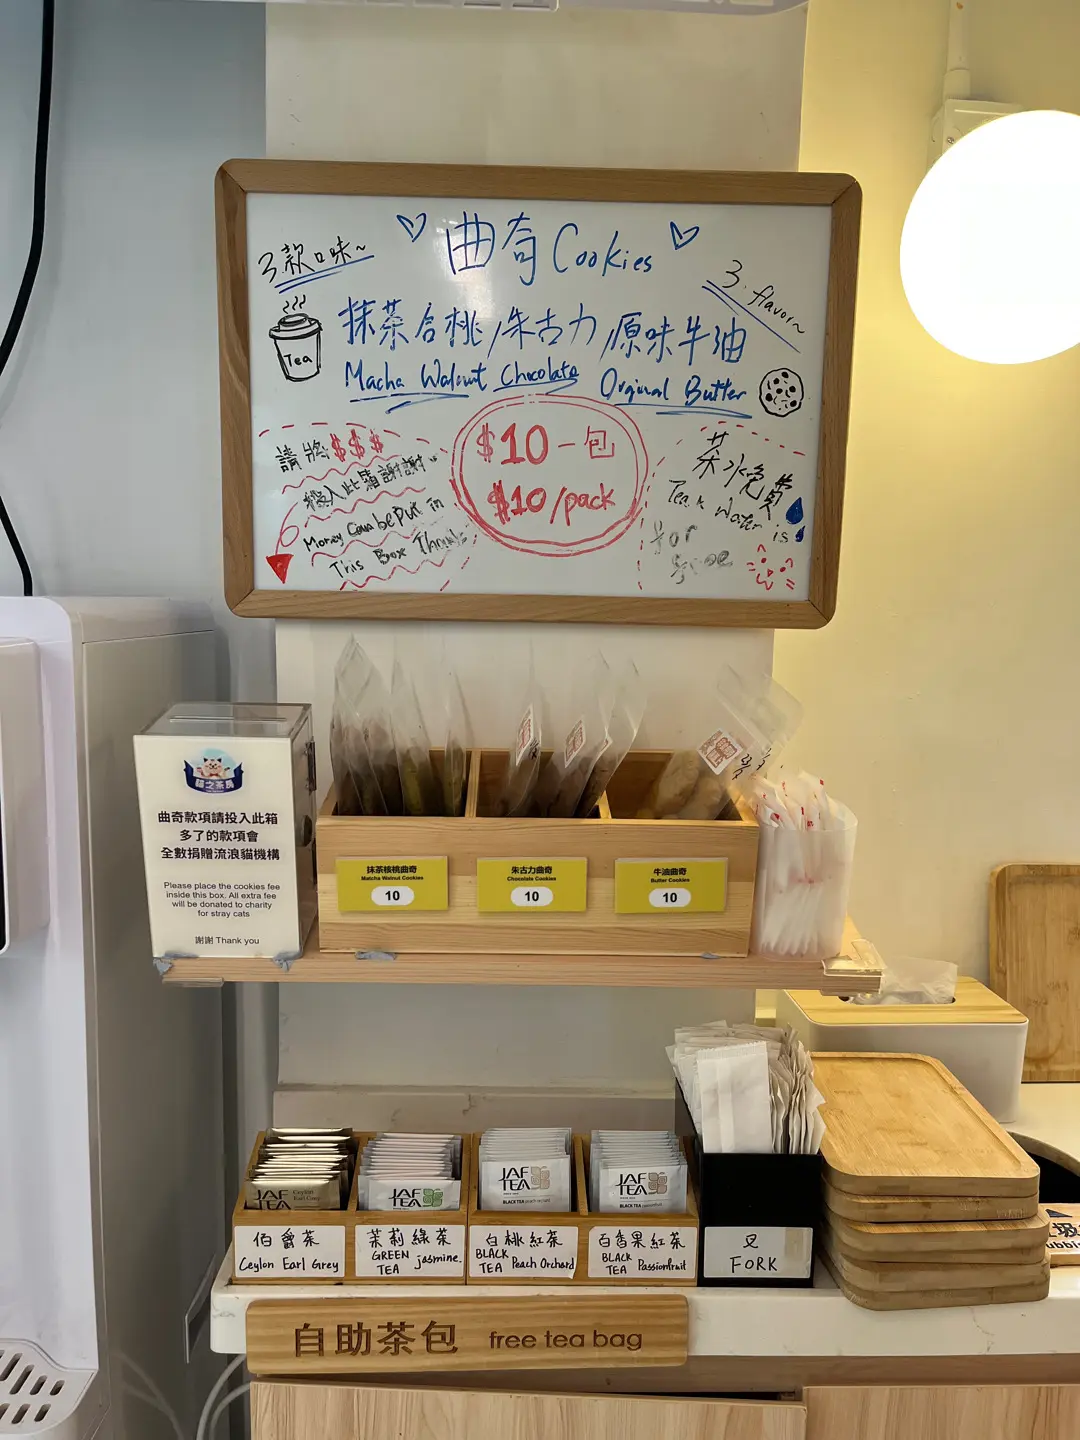 曲奇 Cookies
3款口味~
3. flavor~
Tea
抹茶合桃/朱古力/原味牛油
Macha Walnut Chocolate Orginal Butter
請將$$$
投入此箱謝謝。
Money Can be Put in
This Box Thanks
$10一包
$10/pack
茶水免費
Tea & Water is
for
free
貓之茶房
曲奇款項請投入此箱
多了的款項會
全數捐贈流浪貓機構
Please place the cookies fee
inside this box. All extra fee
will be donated to charity
for stray cats
謝謝 Thank you
抹茶核桃曲奇
Matcha Walnut Cookies
10
朱古力曲奇
Chocolate Cookies
10
牛油曲奇
Butter Cookies
10
JAF TEA
Ceylon
Earl Grey
JAF
TEA
JAF
TEA
BLACK TEA peach orchard
JAF
TEA
BLACK TEA passionfruit
伯爵茶
Ceylon Earl Grey
茉莉綠茶
GREEN TEA jasmine.
白桃紅茶
BLACK TEA Peach Orchard
百香果紅茶
BLACK TEA Passionfruit
叉
FORK
自助茶包 free tea bag